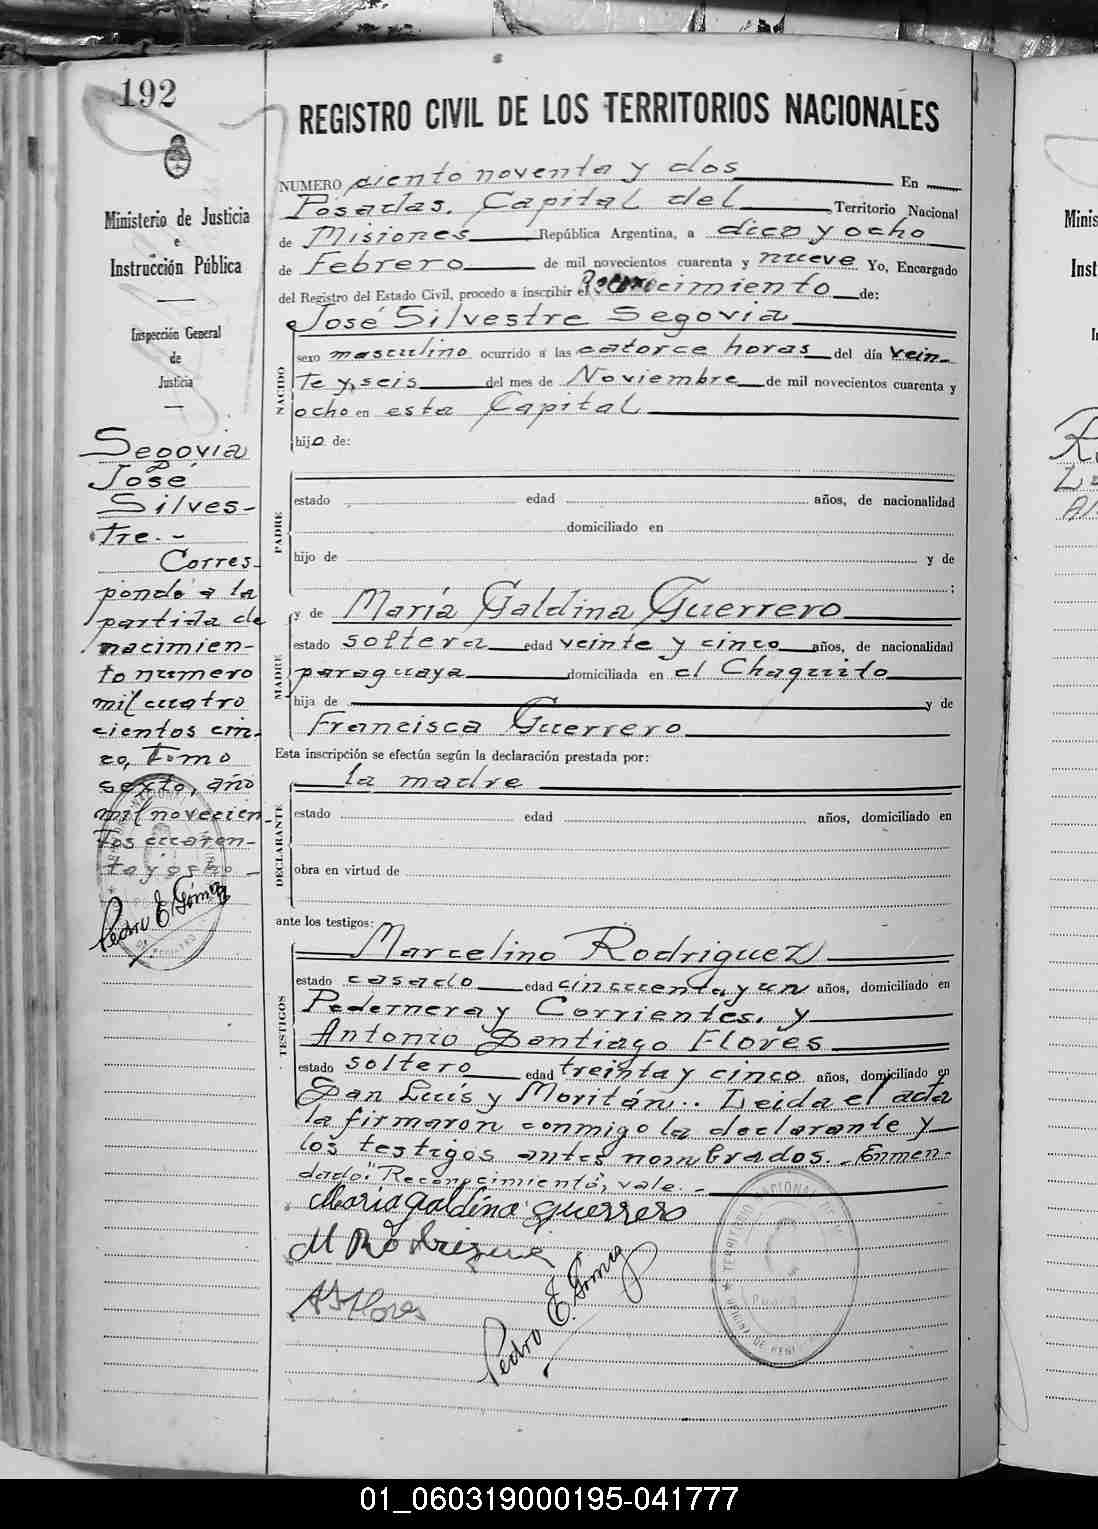 192
Ministerio de Justicia
e
Instrucción Pública
Inspección General
de
Justicia
Segovia
José
Silves-
tre.-
Corres-
ponde a la
partida de
nacimien-
to numero
mil cuatro
cientos cin-
co, Tomo
sexto, año
mil novecien-
tos cuaren-
ta y ocho-
Pedro E. Gómez
REGISTRO CIVIL DE LOS TERRITORIOS NACIONALES
NUMERO ciento noventa y dos En
Posadas. Capital del Territorio Nacional
de Misiones República Argentina, a dieo y ocho
de Febrero de mil novecientos cuarenta y nueve Yo, Encargado
del Registro del Estado Civil, procedo a inscribir el Reconocimiento de:
José Silvestre Segovia
NACIDO
sexo masculino ocurrido a las catorce horas del día vein-
te y seis del mes de Noviembre de mil novecientos cuarenta y
ocho en esta Capital
hijo de:
PADRE
estado edad años, de nacionalidad
domiciliado en
hijo de y de
;
MADRE
y de María Galdina Guerrero
estado soltera edad veinte y cinco años, de nacionalidad
paraguaya domiciliada en el Chaquito
hija de y de
Francisca Guerrero
Esta inscripción se efectúa según la declaración prestada por:
la madre
DECLARANTE
estado edad años, domiciliado en
obra en virtud de
ante los testigos:
TESTIGOS
Marcelino Rodriguez
estado casado edad cincuenta y un años, domiciliado en
Pedernera y Corrientes. y
Antonio Santiago Flores
estado soltero edad treinta y cinco años, domiciliado en
San Luis y Moritán.. Leida el acta
la firmaron conmigo la declarante y
los testigos antes nombrados.-Enmen-
dado:"Reconocimiento", vale.-
Maria Galdina Guerrero
M Rodriguez
AS Flores
Pedro E. Gómez
TERRITORIO NACIONAL DE
Minis
Inst
01_060319000195-041777